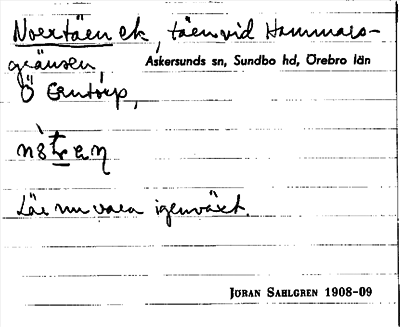 Norrtäen ek, täen vid Hammars-
gränsen, Askersunds sn, Sundbo hd, Örebro län
Ö Erntorp,
Lär nu vara igenväxt.
JÖRAN SAHLGREN 1908-09